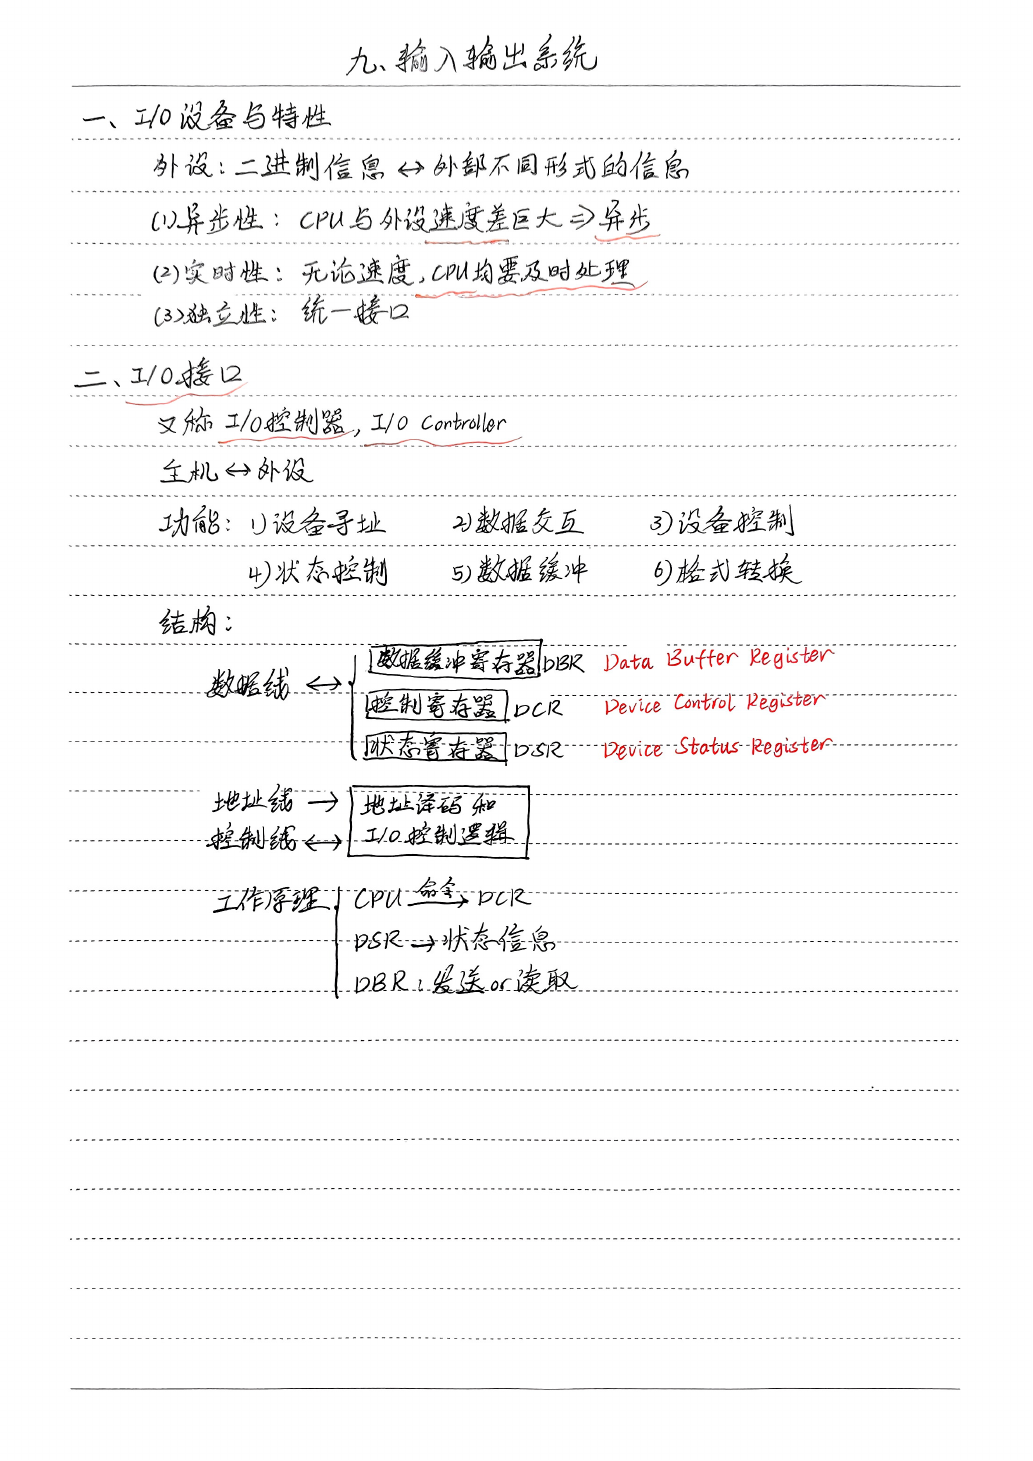 九、输入输出系统
一、I/O设备与特性
外设：二进制信息 ↔ 外部不同形式的信息
(1)异步性： CPU与外设速度差巨大 ⇒ 异步
(2)实时性： 无论速度，CPU均要及时处理
(3)独立性： 统一接口
二、I/O接口
又称 I/O控制器，I/O Controller
主机 ↔ 外设
功能： 1)设备寻址 2)数据交互 3)设备控制
4)状态控制 5)数据缓冲 6)格式转换
结构：
数据缓冲寄存器 DBR Data Buffer Register
数据线 ↔
控制寄存器 DCR Device Control Register
状态寄存器 DSR Device Status Register
地址线 → 地址译码和
控制线 ↔ I/O控制逻辑
工作原理 CPU 命令→ DCR
DSR → 状态信息
DBR：发送or读取